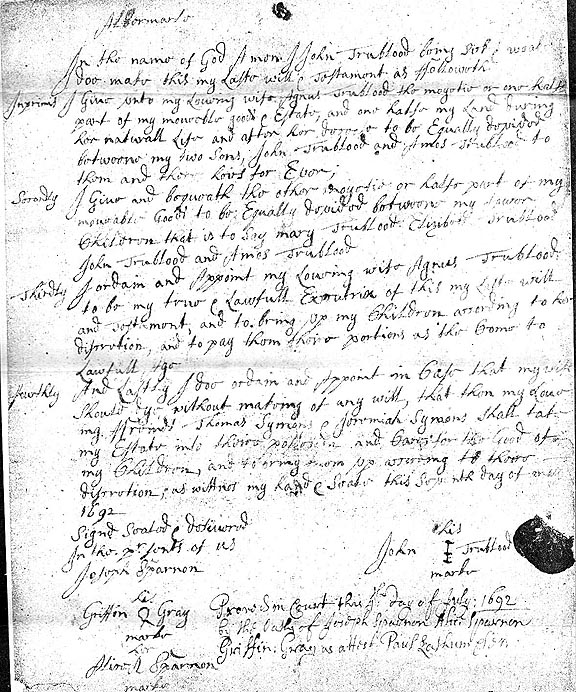 Albemarle
In the name of God Amen I John Trublood being Sick & weak
doe make this my Laste will & Testament as Followeth
Inprimis I Give unto my Loweing wife Agnus Trublood the moyetie or one halfe
part of my moveable goods & Estate, and one halfe my Land during
her naturall Life and after her decese to be Equally devided
betweene my two Sons, John Trublood and Amos Trublood to
them and there heires for Ever,
Secondly I Give and bequeath the other moyetie or halfe part of my
moveable Goods to be Equally devided betweene my
Children that is to Say Mary Trublood Elizabeth Trublood
John Trublood and Amos Trublood
Thirdly I ordain and Appoint my Loweing wife Agnus Trublood
to be my true & Lawfull Executrix of this my Laste will
and Testament, and to bring up my Children according to her
discretion, and to pay them there portions as the Come to
Lawfull Age
fourthly And Lastly I doe ordain and Appoint in Case that my wife
Should dye without makeing of any will, that then my Loweing
Friends Thomas Symons & Jeremiah Symons Shall take
my Estate into there and Care for the Good of
my Children, and to bring them up according to there
discretion, as wittnes my hand & Seale this day of
1692
Signd Sealed & delivered
In the presents of us
Joseph Sparnon
his
John I Trublood
marke
his
Griffin Gray
marke
her
Alice Sparnon
marke
Proved in Court this day of July: 1692
by the Oaths of Joseph Sparnon Alice Sparnon
Griffin: Gray as attest Paul Lathum